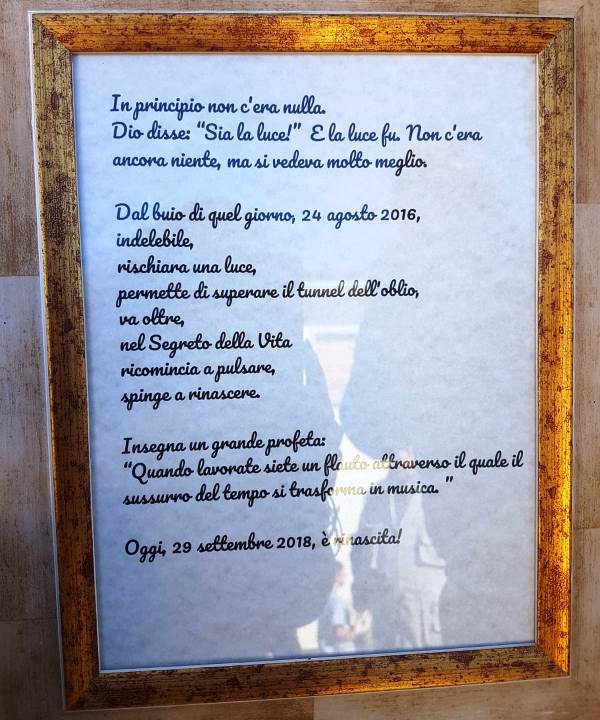 In principio non c'era nulla.
Dio disse: "Sia la luce!" E la luce fu. Non c'era
ancora niente, ma si vedeva molto meglio.
Dal buio di quel giorno, 24 agosto 2016,
indelebile,
rischiara una luce,
permette di superare il tunnel dell'oblio,
va oltre,
nel Segreto della Vita
ricomincia a pulsare,
spinge a rinascere.
Insegna un grande profeta:
"Quando lavorate siete un flauto attraverso il quale il
sussurro del tempo si trasforma in musica. "
Oggi, 29 settembre 2018, è rinascita!